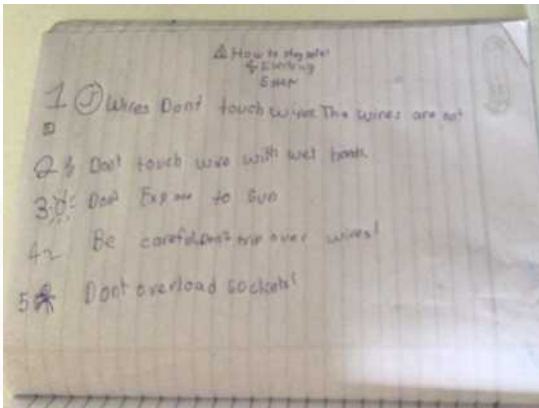 How to stay safe!
Wires Dont touch wires The wires are not
2 Dont touch wire with wet hands
3 Dont Expose to Sun
4 Be careful Don't trip over wires!
5 Dont overload sockets!